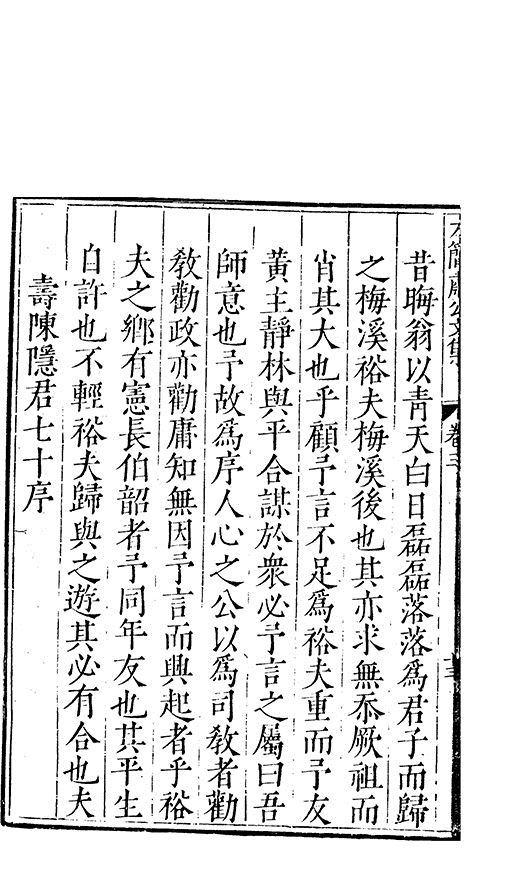 昔晦翁以靑天白日磊磊落落爲君子而歸
之梅溪裕夫梅溪後也其亦求無忝厥祖而
肖其大也乎顧予言不足爲裕夫重而予友
黃主靜林與平合謀於衆必予言之屬曰吾
師意也予故爲序人心之公以爲司敎者勸
敎勸政亦勸庸知無因予言而興起者乎裕
夫之鄕有憲長伯韶者予同年友也其平生
白許也不輕裕夫歸與之遊其必有合也夫
壽陳隱君七十序